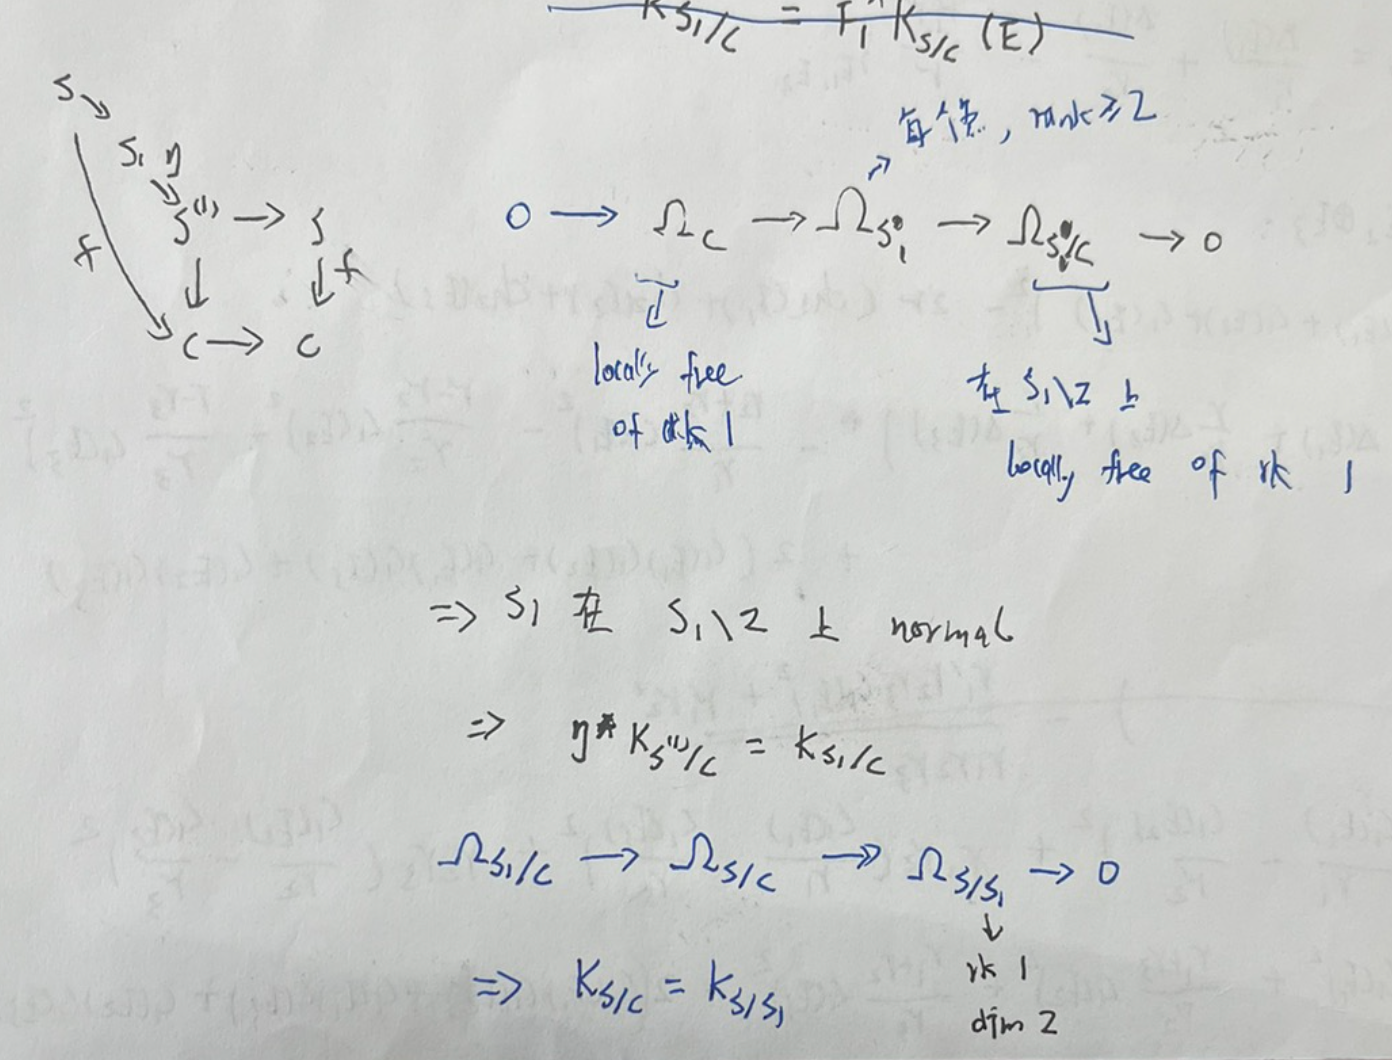 K_{S_1/C} = F_1^* K_{S/C} (E)
S
S_1 η
S^{(1)} → S
f ↓ ↓ f
C → C
每个点, rank ≥ 2
0 → Ω_C → Ω_{S_1} → Ω_{S_1/C} → 0
locally free
of rk 1
在 S_1\Z 上
locally free of rk 1
⇒ S_1 在 S_1\Z 上 normal
⇒ η^* K_{S^{(1)}/C} = K_{S_1/C}
Ω_{S_1/C} → Ω_{S/C} ↠ Ω_{S/S_1} → 0
↓
rk 1
dim 2
⇒ K_{S/C} = K_{S/S_1}